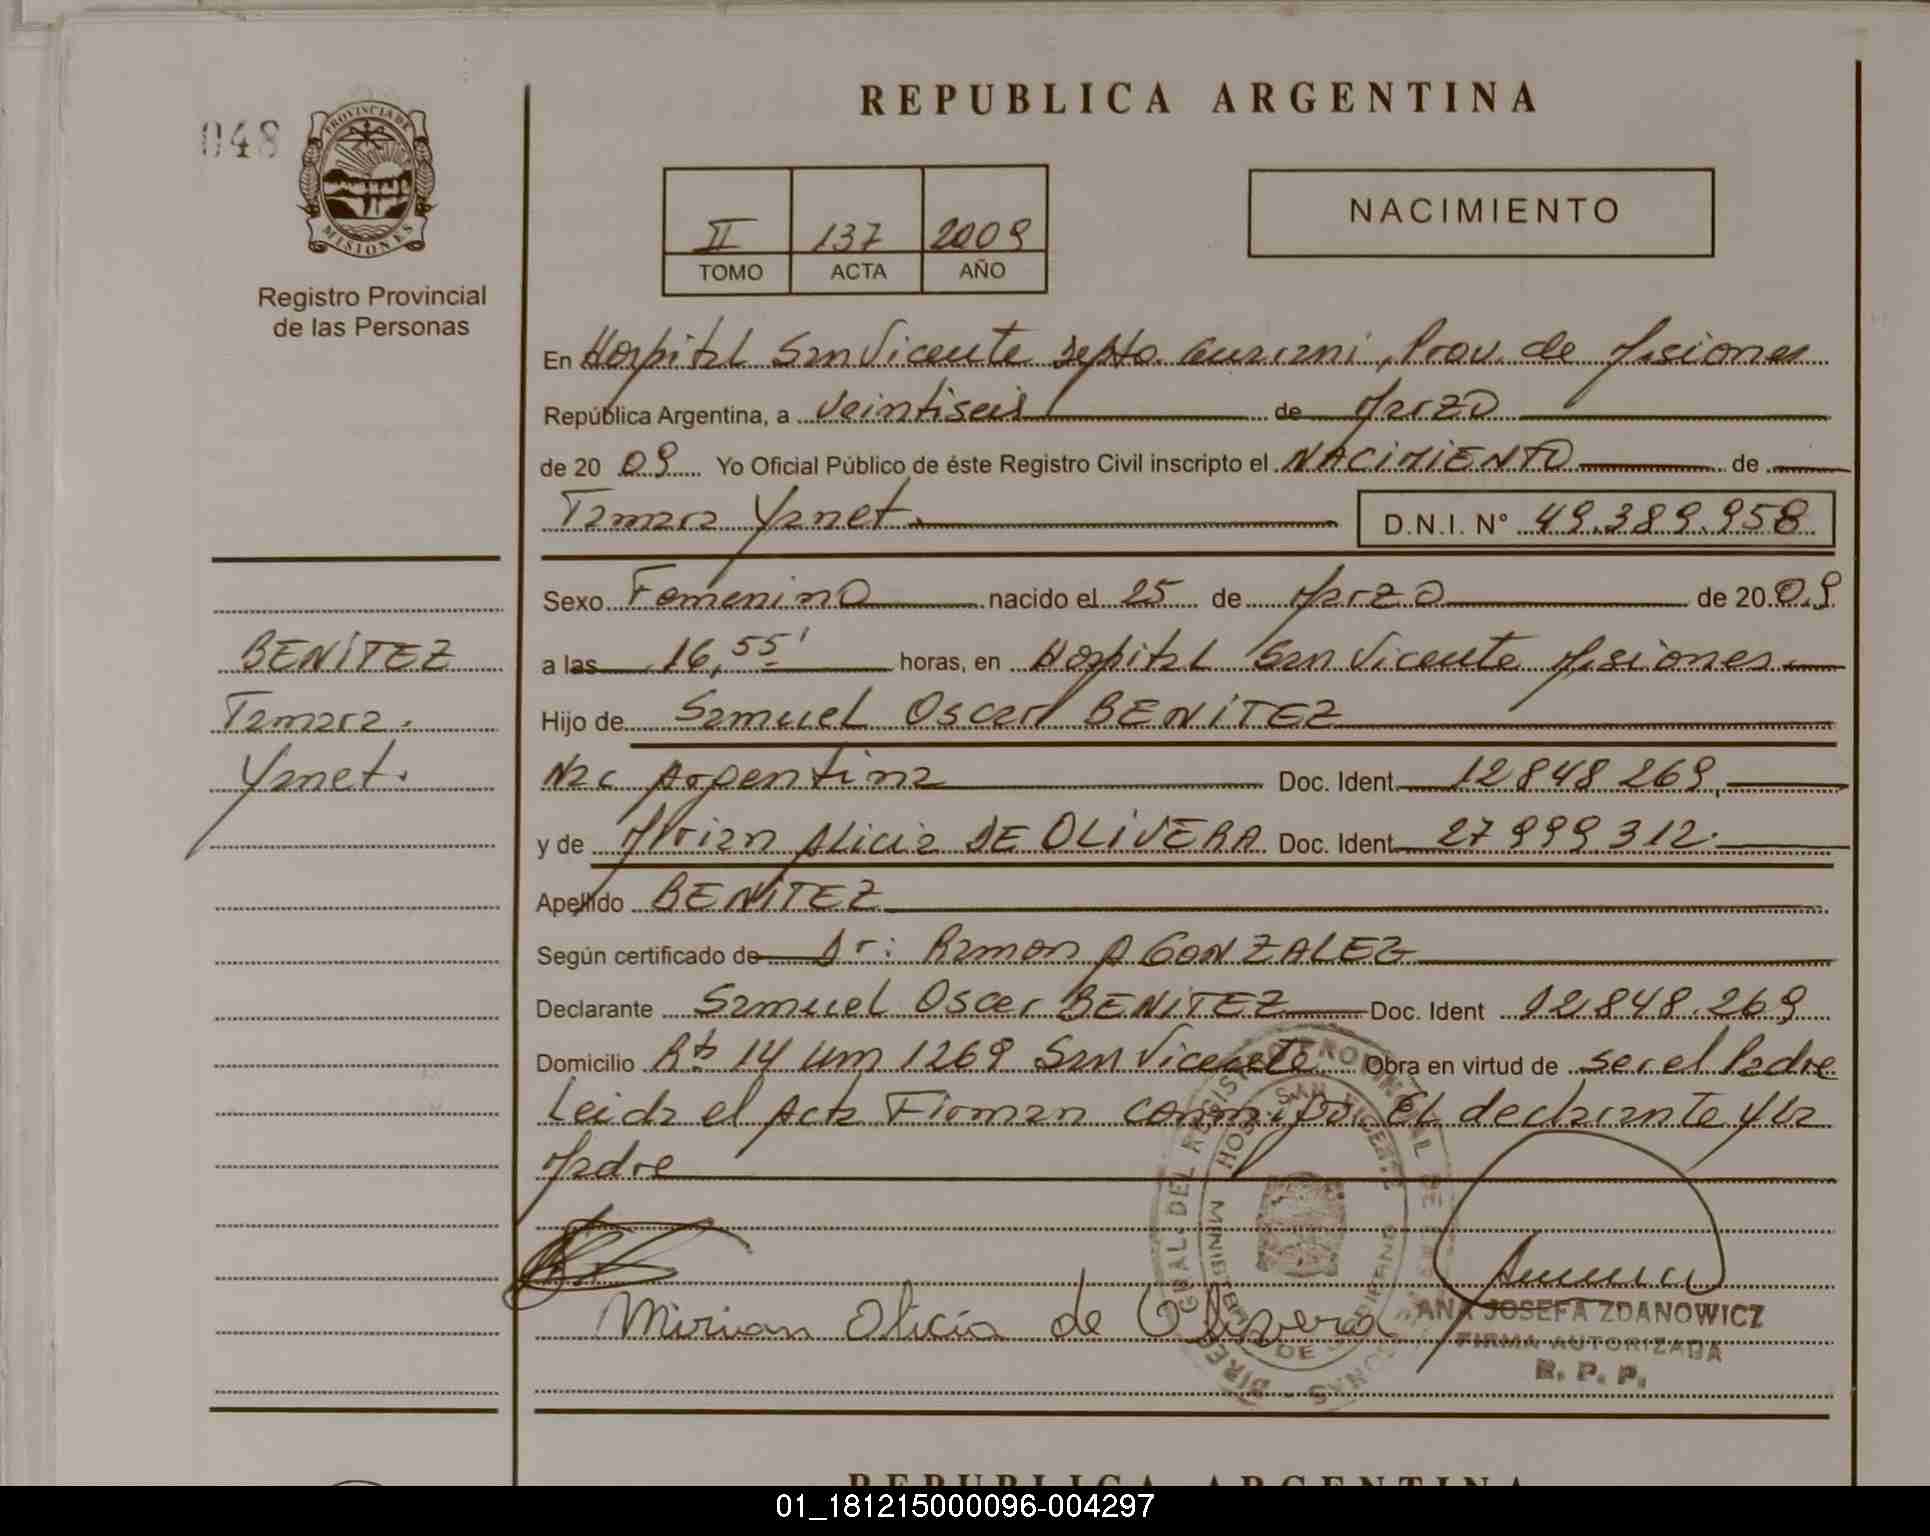 REPUBLICA ARGENTINA
048
PROVINCIA DE
MISIONES
Registro Provincial
de las Personas
II 137 2009
TOMO ACTA AÑO
NACIMIENTO
En Hospital San Vicente Depto Guarani, Prov. de Misiones
República Argentina, a veintiseis de Marzo
de 20 09 Yo Oficial Público de éste Registro Civil inscripto el NACIMIENTO de
Tamara Yanet. D.N.I. N° 49.389.958
Sexo Femenino nacido el 25 de Marzo de 20 09
a las 16,55' horas, en Hospital San Vicente Misiones
Hijo de Samuel Oscar BENITEZ
Nac Argentina Doc. Ident. 12848269,
y de Mirian Alicia DE OLIVERA Doc. Ident. 27999312.
Apellido BENITEZ
Según certificado de Dr: Ramon A GONZALEZ
Declarante Samuel Oscar BENITEZ Doc. Ident 12.848.269
Domicilio Rta 14 Km 1269 San Vicente Obra en virtud de ser el Padre
Leida el Acta Firman conmigo El declarante y la
Madre
BENITEZ
Tamara.
Yanet.
Mirian Alicia de Olivera
ANA JOSEFA ZDANOWICZ
FIRMA AUTORIZADA
R. P. P.
REPUBLICA ARGENTINA
01_181215000096-004297